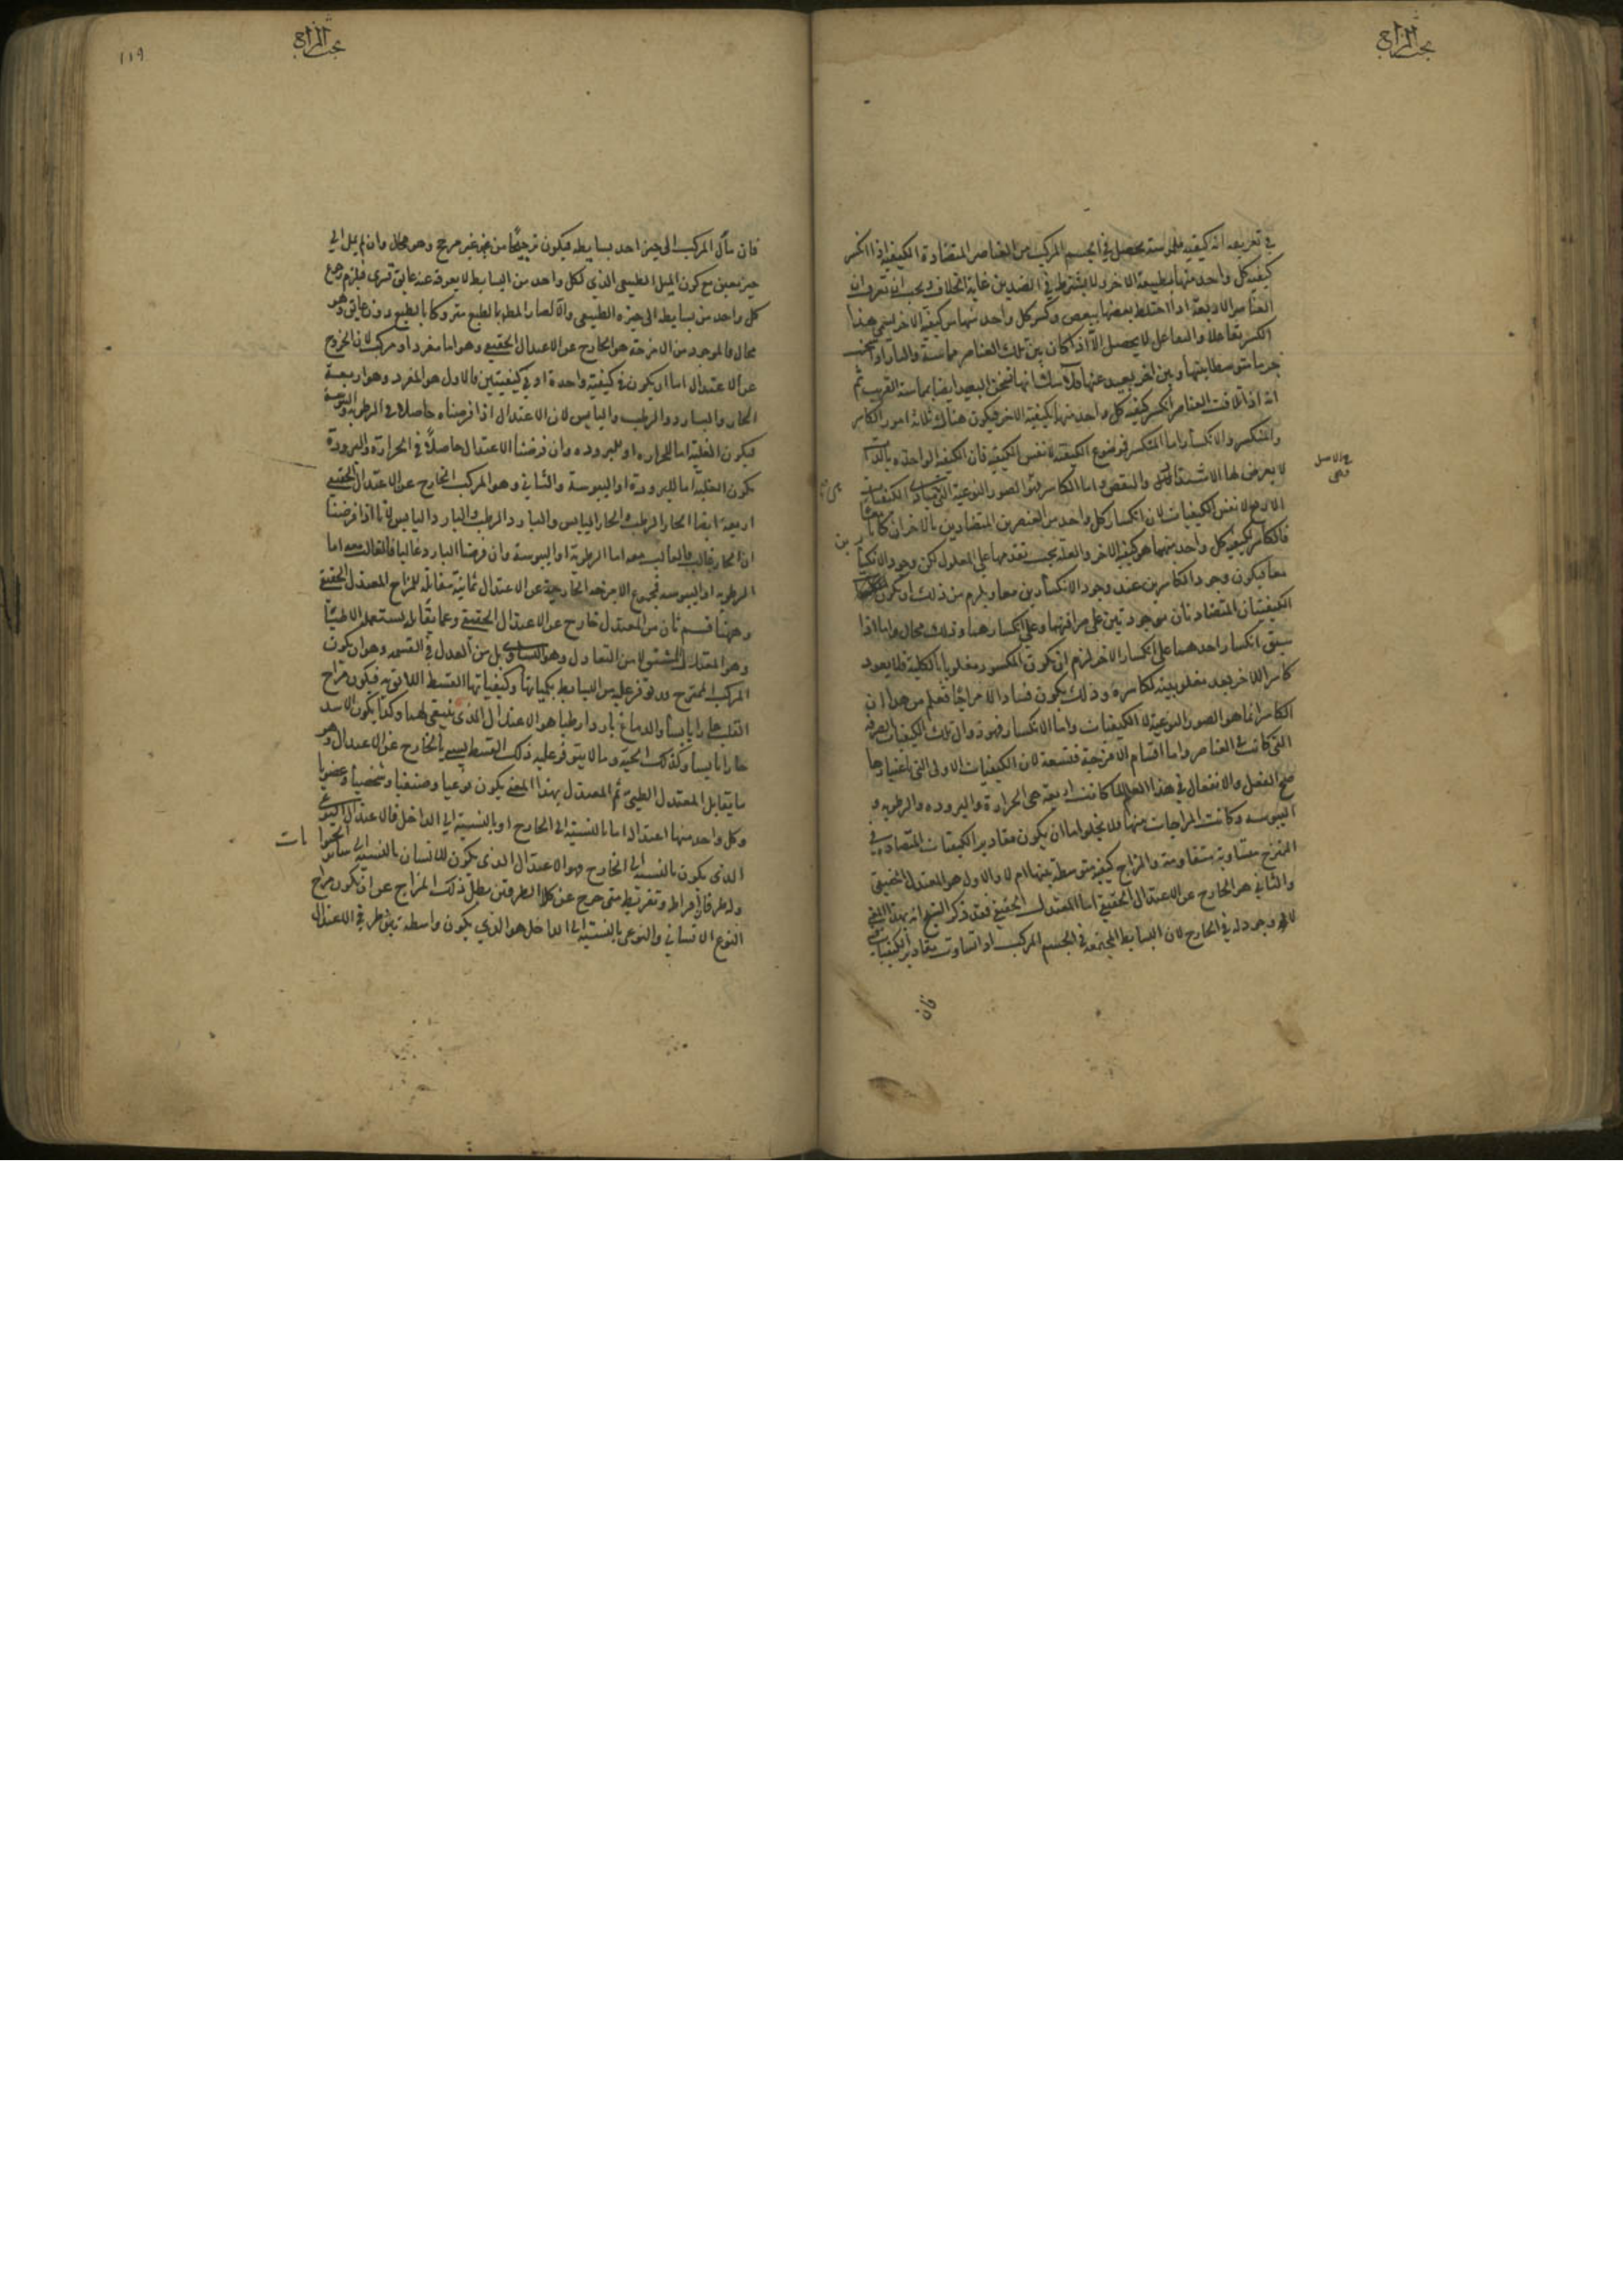 بحث المزاج
في تعريفه انه كيفيه ملموسة يحصل في الجسم المركب من العناصر المتضادة الكيفية اذا انكسر
كيفية كل واحد منها بطبيعة الاخر ولا يشترط في الضدين غاية الخلاف ويجب ان تعرف ان
العناصر الاربعة اذا اختلط بعضها ببعض وكسر كل واحد منها من كيفية الاخر يسمى هذا
الكسر تفاعلا والتفاعل لا يحصل الا اذا كان بين تلك العناصر مماسة والنار اذا سخنت
جرما متوسطا بينها وبين اخر بعيد عنها فلا شك انها تسخن البعيد ايضا بمماسة القريب ثم
انه اذا تلاقت العناصر انكسر كيفية كل واحد منها بكيفية الاخر فيكون هناك ثلاثة امور الكاسر
والمنكسر والانكسار اما المنكسر فموضوع الكيفية لا نفس الكيفية فان الكيفية الواحدة بالذات
لا يعرض لها الاشتداد والنقص واما الكاسر فهو الصور النوعية التي مبادى الكيفيات
لا نفس الكيفيات لان انكسار كل واحد من العنصرين المتضادين بالاخر ان كانا معا
فالكاسر لكيفية كل واحد منهما هو كيفية الاخر والعلة يجب تقدمها على المعلول لكن وجود الانكسارين
معا فيكون وجود الكاسرين عند وجود الانكسارين معا ويلزم من ذلك ان يكون
الكيفيتان المتضادتان موجودتين على صرافتهما وعلى انكسارهما وذلك محال واما اذا
سبق انكسار احدهما على انكسار الاخر لزم ان يكون المكسور مغلوبا بالكلية فلا يعود
كاسرا للاخر بعد مغلوبيته لكاسره وذلك يكون فسادا لا مزاجا فعلم من هذا ان
الكاسر انما هو الصور النوعية لا الكيفيات واما الانكسار فهو زوال تلك الكيفيات الصرفه
التي كانت في العناصر واما اقسام الامزجة فتسعة لان الكيفيات الاولى التي باعتبارها
صح الفعل والانفعال في هذا العالم لما كانت اربعة هي الحرارة والبروده والرطوبه و
اليبوسه وكانت المزاجات منها فلا يخلو اما ان يكون مقادير الكيفيات المتضاده في
الممتزج متساوية متقاومة والمزاج كيفية متوسطة بينها ام لا والاول هو المعتدل الحقيقي
والثاني هو الخارج عن الاعتدال الحقيقي اما المعتدل الحقيقي فقد ذكر الشيخ انه بهذا المعنى
لا وجود له في الخارج لان البسايط المجتمعة في الجسم المركب اذا تساوت مقادير الكيفيات
فان
بحث المزاج
١١٩
فان مال المركب الى حيز احد بسايطه فيكون ترجيحا من غير مرجح وهو محال وان لم يمل الى
حيز معين مع كون الميل الطبيعي الذي لكل واحد من البسايط لا يعوقه عنه عايق قسرى فيلزم رجوع
كل واحد من بسايطه الى حيزه الطبيعي والا لصار المطلوب بالطبع متروكا بالطبع دون عايق وهو
محال فالموجود من الامزجة هو الخارج عن الاعتدال الحقيقي وهو اما مفرد او مركب لان الخروج
عن الاعتدال اما ان يكون في كيفية واحدة او في كيفيتين فالاول هو المفرد وهو اربعة
الحار والبارد والرطب واليابس لان الاعتدال اذا فرضناه حاصلا في الرطوبة واليبوسة
فيكون الغلبة اما للحراره او للبروده وان فرضنا الاعتدال حاصلا في الحرارة والبرودة
يكون الغلبة اما للرطوبة او اليبوسة والثاني وهو المركب الخارج عن الاعتدال الحقيقي
اربعة ايضا الحار الرطب والحار اليابس والبارد الرطب والبارد اليابس لانا اذا فرضنا
ان الحار غالب فالغالب معه اما الرطوبة او اليبوسة وان فرضنا البارد غالبا فالغالب معه اما
الرطوبه او اليبوسه فمجموع الامزجة الخارجة عن الاعتدال ثمانية مقابلة للمزاج المعتدل الحقيقي
وههنا قسم ثان من المعتدل خارج عن الاعتدال الحقيقي وعما يقابله يستعمله الاطباء
وهو المعتدل المشتق لا من التعادل وهو التساوي بل من العدل في القسمه وهو ان يكون
المركب الممتزج قد توفر عليه من البسايط بكمياتها وكيفياتها القسط اللائق به فيكون مزاج
القلب حارا يابسا والدماغ باردا رطبا هو الاعتدال الذي ينبغي لهما وكذا يكون الاسد
حارا يابسا وكذلك الحية وما لا يتوفر عليه ذلك القسط يسمى بالخارج عن الاعتدال وهو
ما يقابل المعتدل الطبي ثم المعتدل بهذا المعنى يكون نوعيا وصنفيا وشخصيا وعضويا
وكل واحد منها اعتداله اما بالنسبة الى الخارج او بالنسبة الى الداخل فالاعتدال النوعي
الذي يكون بالنسبة الى الخارج هو الاعتدال الذي يكون للانسان بالنسبة الى سائر الحيوانات
وله طرفا افراط وتفريط متى خرج عن كلا الطرفين بطل ذلك المزاج عن ان يكون مزاج
النوع الانساني والنوعي بالنسبة الى الداخل هو الذي يكون واسطة بين طرفي الاعتدال